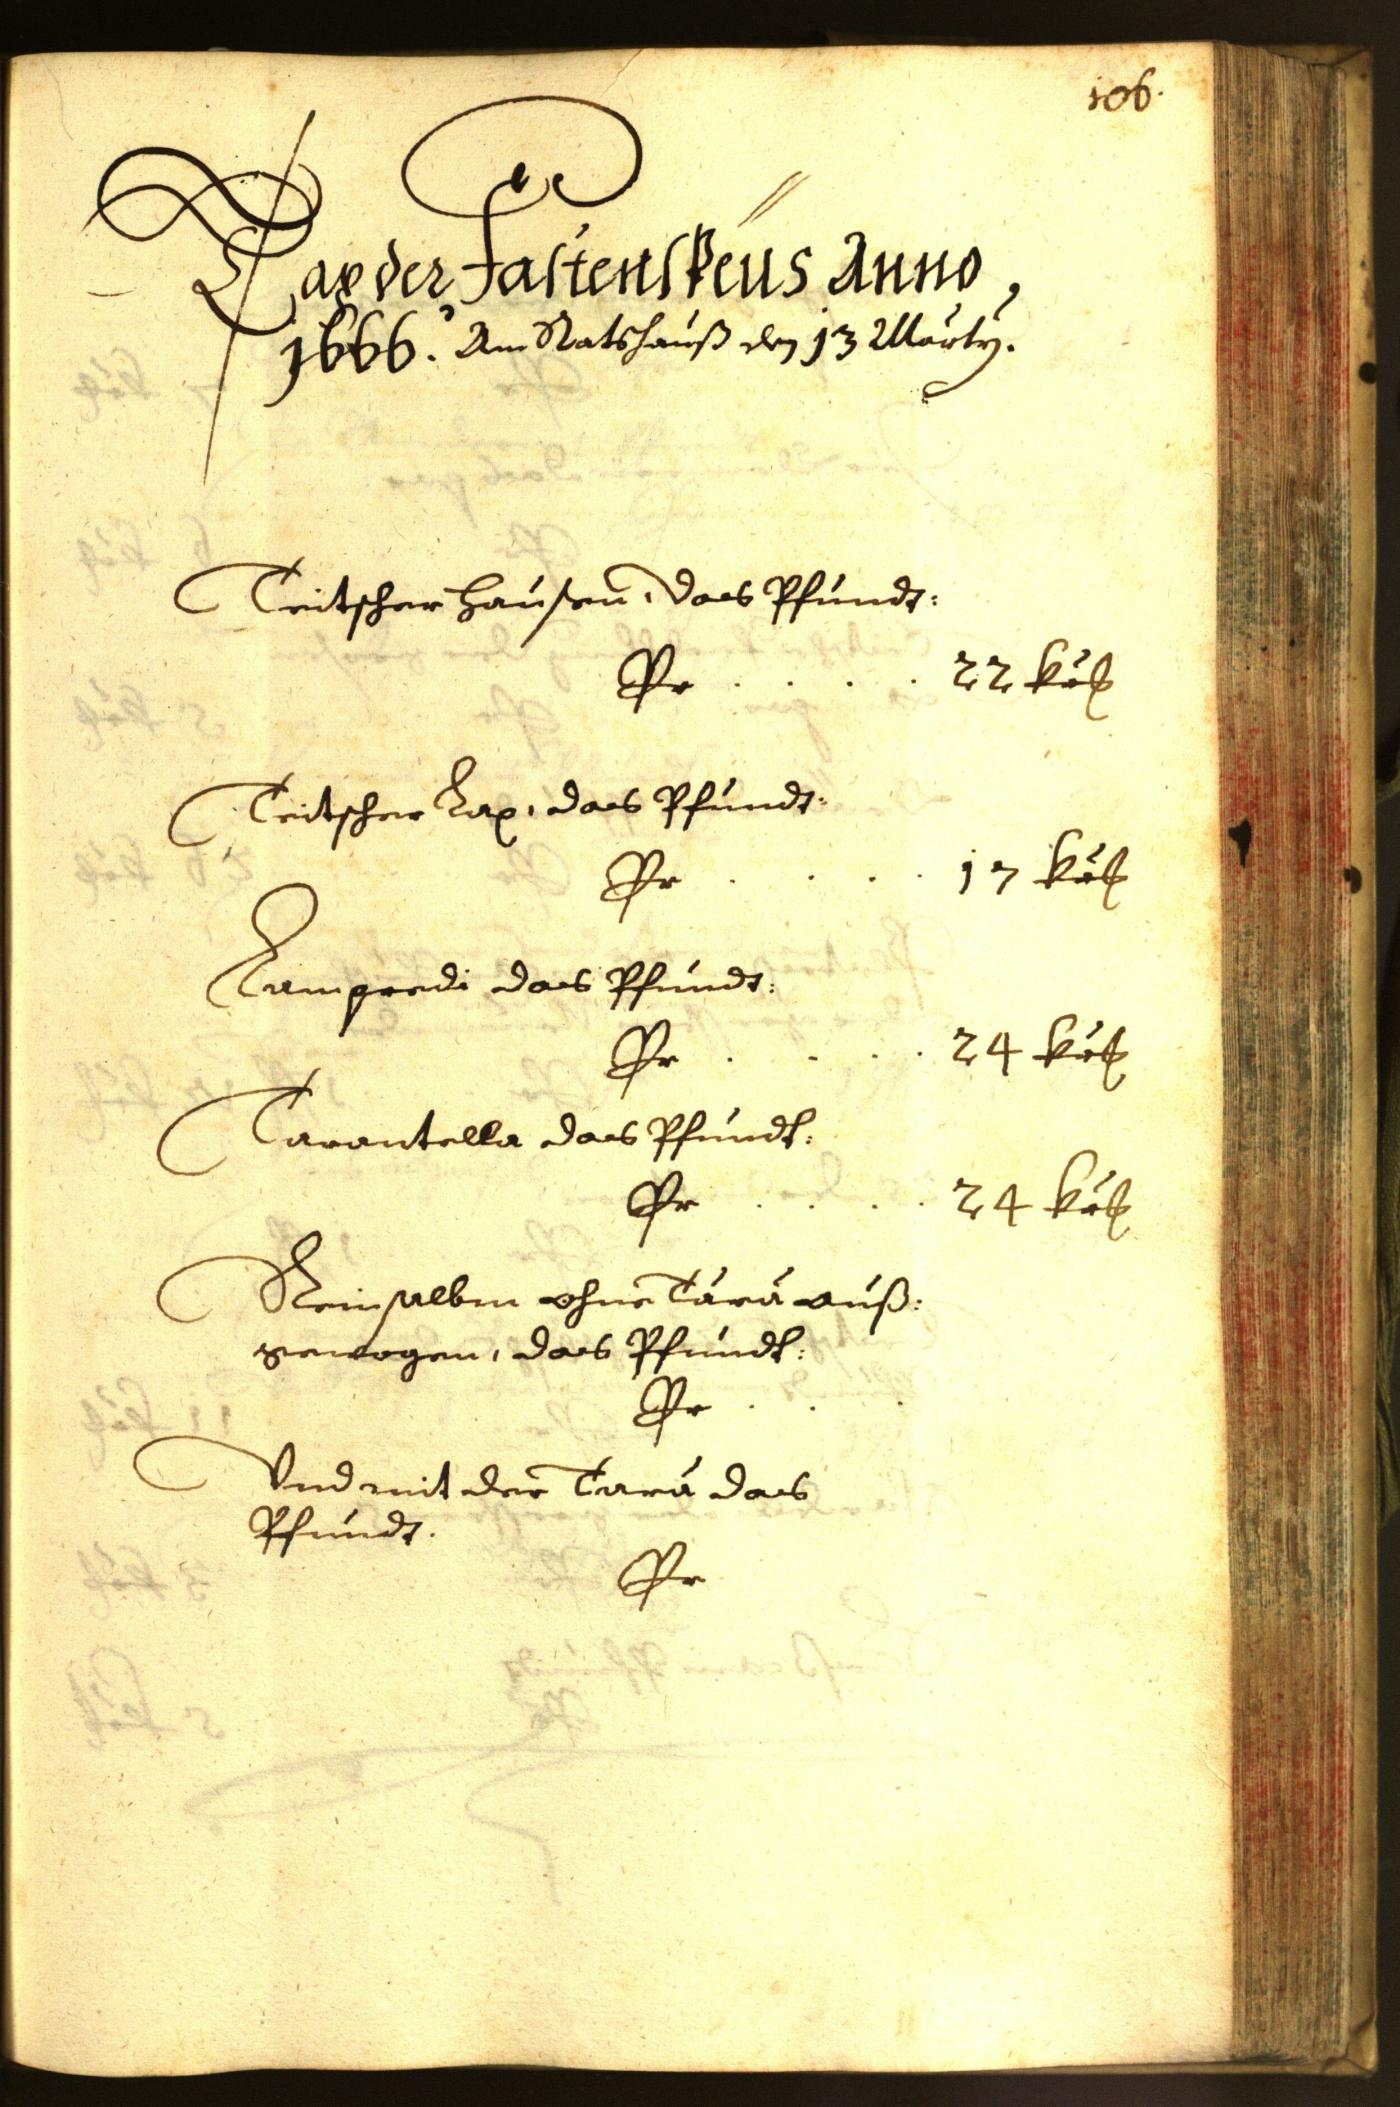 106.
Tax der Fastenspeis Anno,
1666. Am Ratshauß den 13 Marty.
Teitscher Hausen, das Pfundt:
Pr . . . . 22 kr
Teitscher Lax, das Pfundt:
Pr . . . . 17 kr
Lampredi das Pfundt:
Pr . . . . 24 kr
Tarantella das Pfundt:
Pr . . . . 24 kr
Reinsalbm ohne Tara auß:
gewogen, das Pfundt:
Pr . . .
Vnd mit der Tara das
Pfundt.
Pr